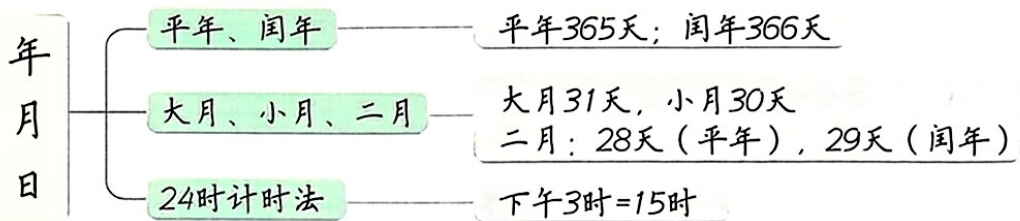 年月日
平年、闰年
平年365天；闰年366天
大月、小月、二月
大月31天，小月30天
二月：28天（平年），29天（闰年）
24时计时法
下午3时=15时